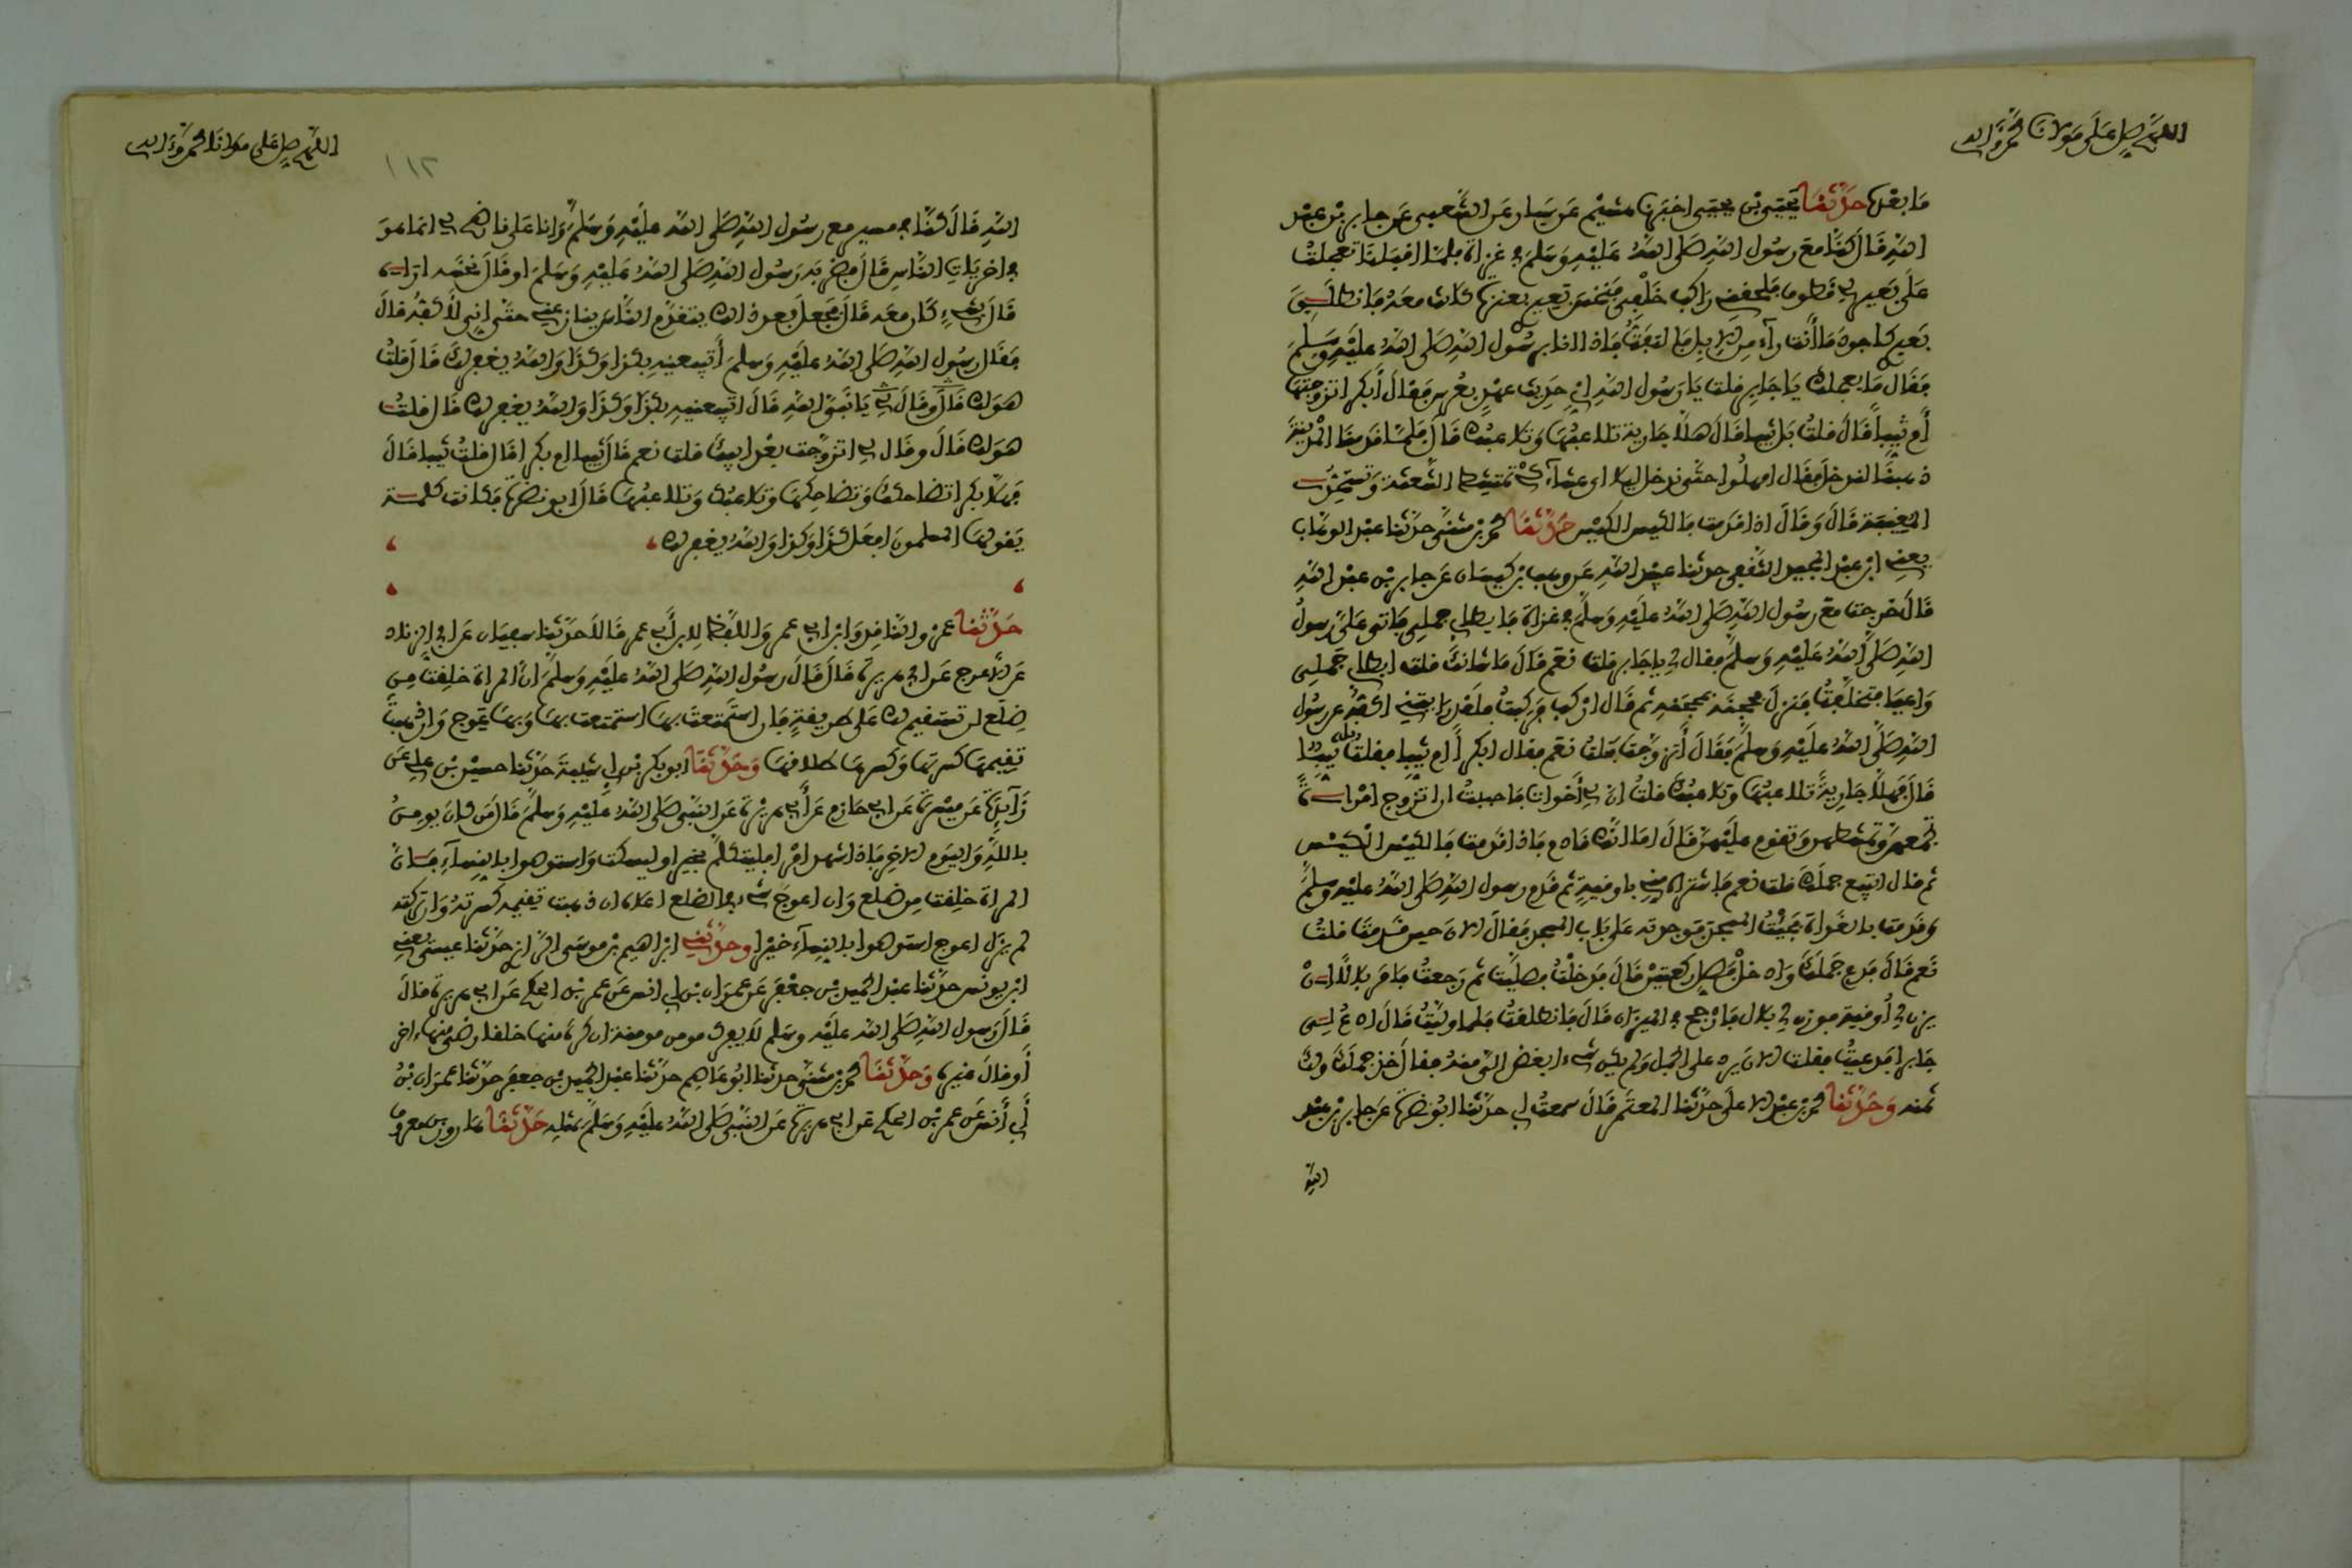 اللهم صل على مولانا محمد وآله
ما بعدها حدثنا يحيى بن يحيى اخبرنا هشيم عن سيار عن الشعبي عن جابر بن عبد
الله قال كنا مع رسول الله صلى الله عليه وسلم في غزاة فلما اقبلنا تعجلت
على بعير لي قطوف فلحقني راكب خلفي فنخس بعيري بعنزة كانت معه فانطلق
بعيري كاجود ما انت رآء من الابل فالتفت فاذا انا برسول الله صلى الله عليه وسلم
فقال ما يعجلك يا جابر قلت يا رسول الله اني حديث عهد بعرس فقال أبكرا تزوجتها
أم ثيبا قال قلت بل ثيبا قال هلا جارية تلاعبها وتلاعبك قال فلما قدمنا المدينة
ذهبنا لندخل فقال امهلوا حتى ندخل ليلا اي عشآء كي تمتشط الشعثة وتستحد
المغيبة قال وقال اذا قدمت فالكيس الكيس حدثنا محمد بن مثنى حدثنا عبد الوهاب
يعني ابن عبد المجيد الثقفي حدثنا عبيد الله عن وهب بن كيسان عن جابر بن عبد الله
قال خرجت مع رسول الله صلى الله عليه وسلم في غزاة فابطا بي جملي فاتى علي رسول
الله صلى الله عليه وسلم فقال لي يا جابر قلت نعم قال ما شانك قلت ابطا بي جملي
واعيا فتخلفت فنزل فحجنه بمحجنه ثم قال اركب فركبت فلقد رايتني اكفه عن رسول
الله صلى الله عليه وسلم فقال أتزوجت قلت نعم فقال ابكرا أم ثيبا فقلت بل ثيبا
قال فهلا جارية تلاعبها وتلاعبك قلت ان لي أخوات فاحببت ان اتزوج امراة
تجمعهن وتمشطهن وتقوم عليهن قال اما انك قادم فاذا قدمت فالكيس الكيس
ثم قال اتبيع جملك قلت نعم فاشتراه مني باوقية ثم قدم رسول الله صلى الله عليه وسلم
وقدمت بالغداة فجئت المسجد فوجدته على باب المسجد فقال الان حين قدمت قلت
نعم قال فدع جملك وادخل فصل ركعتين قال فدخلت فصليت ثم رجعت فامر بلالا ان
يزن لي أوقية فوزن لي بلال فارجح في الميزان قال فانطلقت فلما وليت قال ادع لي
جابرا فدعيت فقلت الان يرد علي الجمل ولم يكن شيء ابغض الي منه فقال خذ جملك ولك
ثمنه وحدثنا محمد بن عبد الاعلى حدثنا المعتمر قال سمعت ابي حدثنا ابو نضرة عن جابر بن عبد
الله
اللهم صل على مولانا محمد وآله
١١٢
الله قال كنا في مسير مع رسول الله صلى الله عليه وسلم وانا على ناضح لي انما هو
في اخريات الناس قال فضربه رسول الله صلى الله عليه وسلم او قال نخسه اراه
قال بشيء كان معه قال فجعل بعد ذلك يتقدم الناس ينازعني حتى اني لأكفه قال
فقال رسول الله صلى الله عليه وسلم أتبيعنيه بكذا وكذا والله يغفر لك قال قلت
هو لك قال وقال لي يا نبي الله قال اتبيعنيه بكذا وكذا والله يغفر لك قال قلت
هو لك قال وقال لي اتزوجت بعد ابيك قلت نعم قال ثيبا ام بكرا قال قلت ثيبا قال
فهلا بكرا تضاحكك وتضاحكها وتلاعبك وتلاعبها قال ابو نضرة فكانت كلمة
يقولها المسلمون افعل كذا وكذا والله يغفر لك
حدثنا عمرو الناقد وابن ابي عمر واللفظ لابن أبي عمر قالا حدثنا سفيان عن ابي الزناد
عن الاعرج عن ابي هريرة قال قال رسول الله صلى الله عليه وسلم ان المراة خلقت من
ضلع لن تستقيم لك على طريقة فان استمتعت بها استمتعت بها وبها عوج وان ذهبت
تقيمها كسرتها وكسرها طلاقها وحدثنا ابو بكر بن ابي شيبة حدثنا حسين بن علي عن
زآيدة عن ميسرة عن ابي حازم عن أبي هريرة عن النبي صلى الله عليه وسلم قال من كان يومن
بالله واليوم الاخر فاذا شهد امرا فليتكلم بخير او ليسكت واستوصوا بالنسآء فان
المراة خلقت من ضلع وان اعوج شيء في الضلع اعلاه ان ذهبت تقيمه كسرته وان تركته
لم يزل اعوج استوصوا بالنسآء خيرا وحدثني ابراهيم بن موسى الرازي حدثنا عيسى يعني
ابن يونس حدثنا عبد الحميد بن جعفر عن عمران بن ابي انس عن عمر بن الحكم عن ابي هريرة قال
قال رسول الله صلى الله عليه وسلم لا يفرك مومن مومنة ان كره منها خلقا رضي منها اخر
أو قال غيره وحدثنا محمد بن مثنى حدثنا ابو عاصم حدثنا عبد الحميد بن جعفر حدثنا عمران بن
أبي أنس عن عمر بن الحكم عن ابي هريرة عن النبي صلى الله عليه وسلم بمثله حدثنا هارون بن معروف